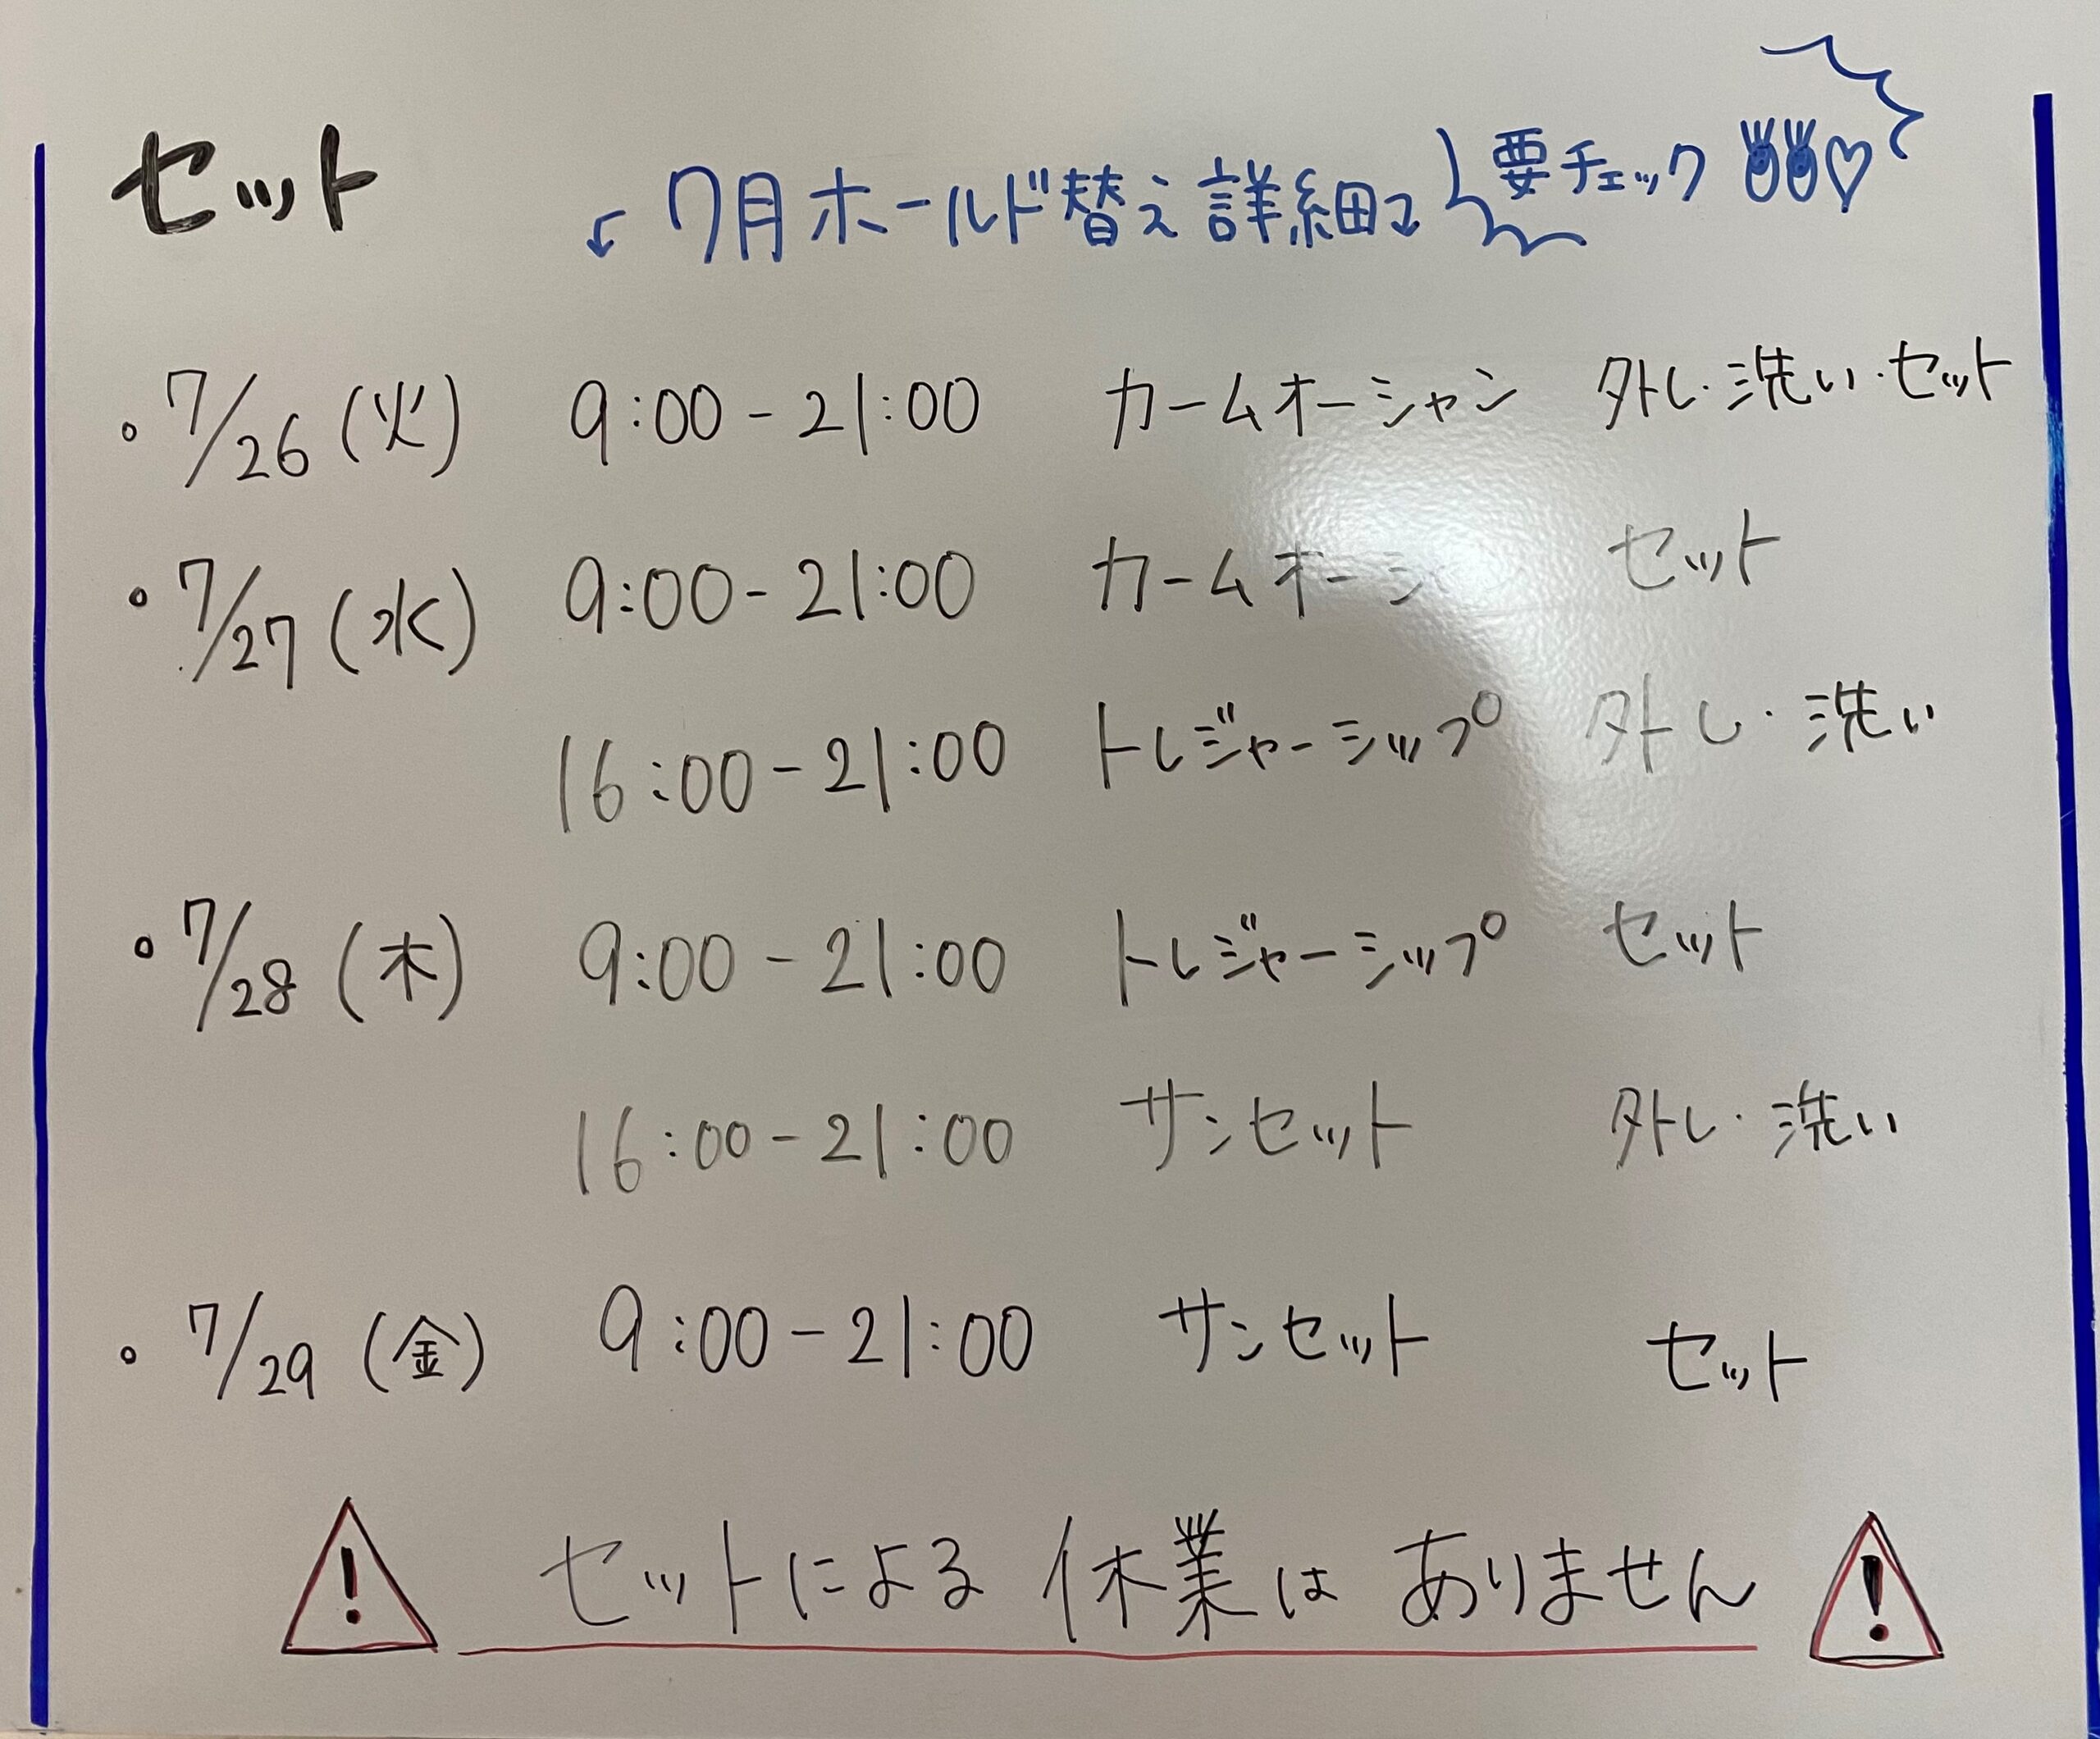 セット
↙ 7月ホールド替え詳細↴ 要チェック ♡
• 7/26 (火) 9:00 - 21:00 カームオーシャン 外し・洗い・セット
• 7/27 (水) 9:00 - 21:00 カームオーシ セット
16:00 - 21:00 トレジャーシップ 外し・洗い
• 7/28 (木) 9:00 - 21:00 トレジャーシップ セット
16:00 - 21:00 サンセット 外し・洗い
• 7/29 (金) 9:00 - 21:00 サンセット セット
! セットによる 休業は ありません !